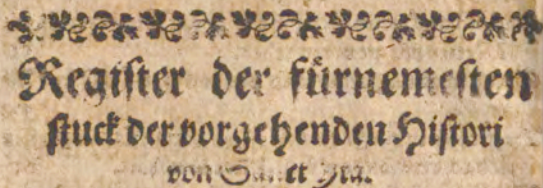 Register der fürnemesten
stuck der vorgehenden Histori
von Sanct